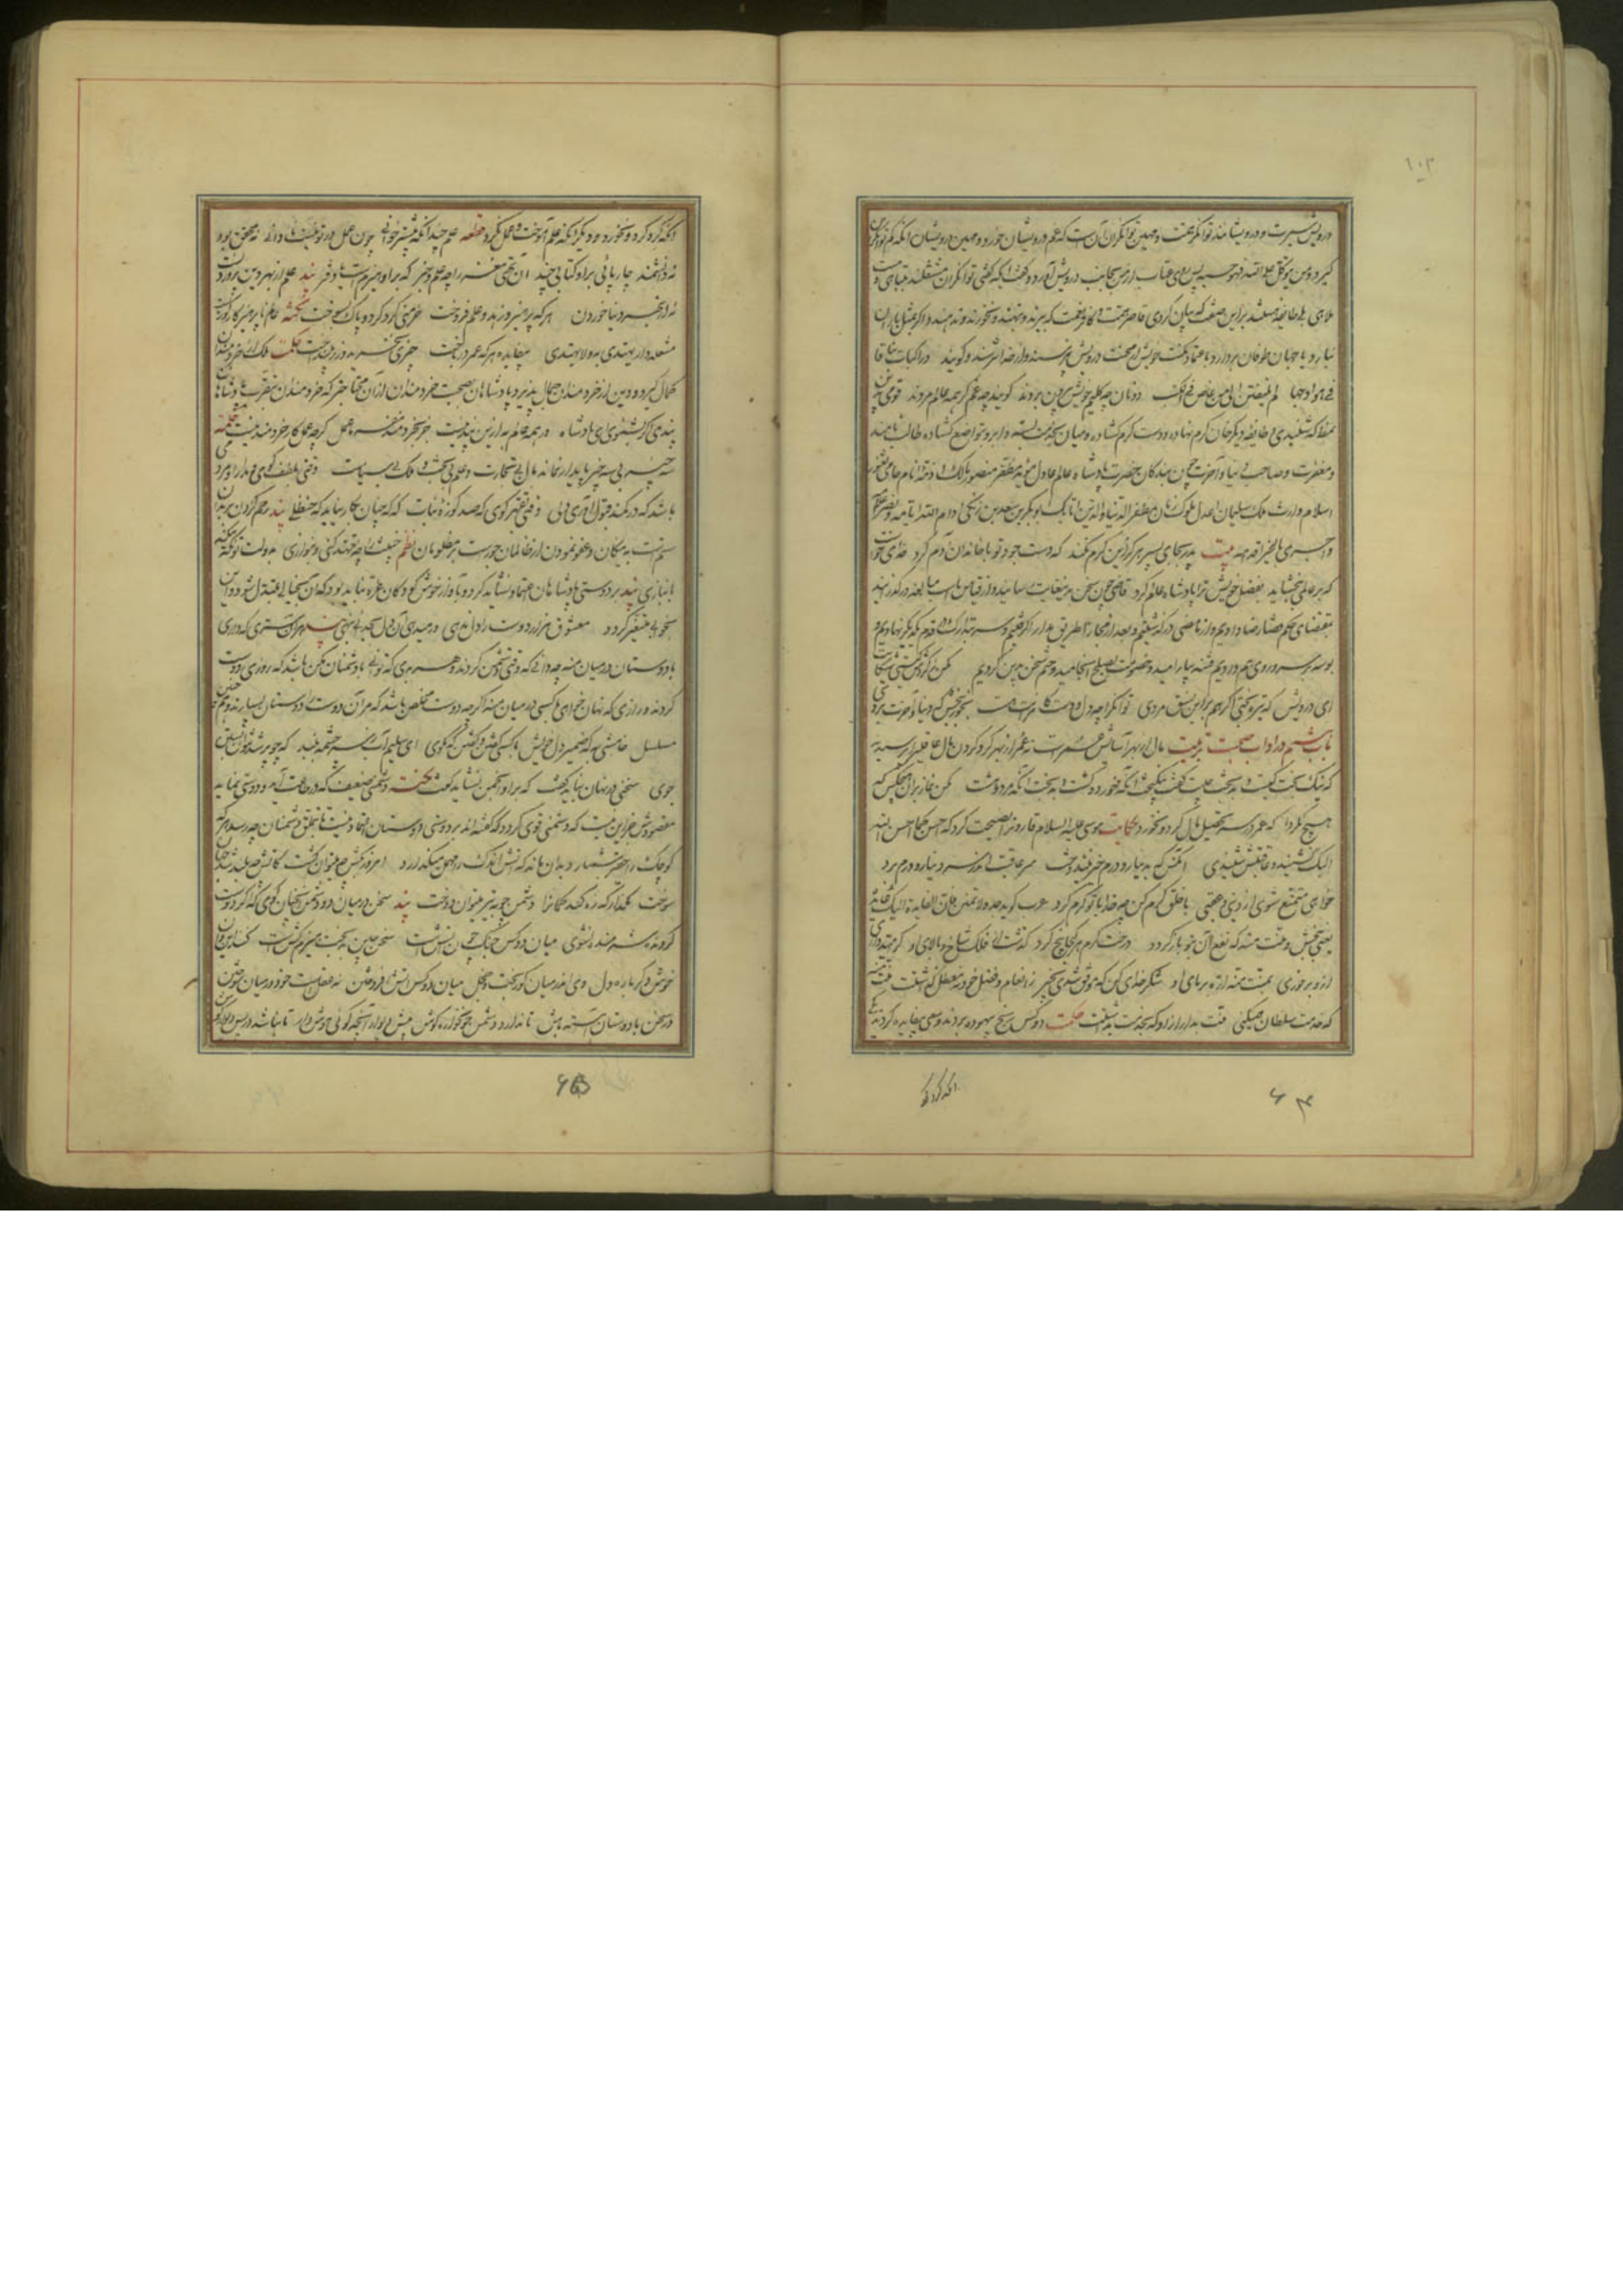 ۱۰۲
درویش سیرت و درویشانند توانگر همت و مهین توانگران آنست که غم درویشان خورد و مهین درویشان آنکه کم توانگران
گیرد و من یتوکل علی الله فهو حسبه پس روی عتاب از من بجانب درویش آورد و گفت ایکه گفتی توانگران مشتغلند بتباهی و مست
ملاهی بلی طایفه هستند براین صفت که بیان کردی قاصر همت و کافر نعمت که ببرند و بنهند و نخورند و ندهند و اگر بمثل باران
نبارد یا جهان طوفان بردارد باعتماد مکنت خویش از محنت درویش نپرسند و از خدا نترسند و گویند و راکبات نیاقا
فی هوادجها لم یلتفتن الی من غاص فی الکثب دونان چو گلیم خویش بیرون بردند گویند چه غم گر همه عالم مردند قومی برین
نمط که شنیدی و طایفه دیگر خوان کرم نهاده و دست کرم گشاده و میان بخدمت بسته و ابرو بتواضع گشاده طالب نامند
و مغفرت و صاحب دنیا و آخرت چون بندگان حضرت پادشاه عالم عادل مؤید مظفر منصور مالک ازمه انام حامی ثغور
اسلام وارث ملک سلیمان اعدل ملوک زمان مظفر الدنیا والدین اتابک ابوبکر بن سعد بن زنگی ادام الله ایامه و نصر اعلامه
بیت پدر بجای پسر هرگز این کرم نکند که دست جود تو با خاندان آدم کرد خدای خواست
که بر عالمی ببخشاید بفضل خویش ترا پادشاه عالم کرد قاضی چون سخن بدینغایت رسانید و از قیاس اسب مبالغه در گذرانید
بمقتضای حکم قضا رضا دادیم و از ماضی در گذشتیم و بعد از مجارا طریق مدارا گرفتیم و سر بتدارک در قدم یکدیگر نهادیم و
بوسه بر سر و روی هم دادیم فتنه بیارامید و خصومت بصلح انجامید و ختم سخن برین کردیم مکن ز گردش گیتی شکایت
ای درویش که تیره بختی اگر هم براین نسق مردی توانگرا چو دل و دست کامرانت هست بخور ببخش که دنیا و آخرت بردی
باب هشتم در آداب صحبت تربیت مال از بهر آسایش عمرست نه عمر از بهر گرد کردن مال عاقلی را پرسیدند
که نیک بخت کیست و بدبخت چیست گفت نیکبخت آنکه خورد و کشت و بدبخت آنکه مرد و هشت مکن نماز بران هیچکس که
هیچ نکرد که عمر در سر تحصیل مال کرد و نخورد حکایت موسی علیه السلام قارون را نصیحت کرد که احسن کما احسن الله
الیک نشنید و عاقبتش شنیدی آنکس که بدینار و درم خیر نیندوخت سر عاقبت اندر سر دینار و درم کرد
خواهی متمتع شوی از دنیی و عقبی با خلق کرم کن چو خدا با تو کرم کرد عرب گوید جد ولا تمنن فان الفایدة الیک عایدة
یعنی ببخش و منت منه که نفع آن بتو بازگردد درخت کرم هر کجا بیخ کرد گذشت از فلک شاخ و بالای او گر امیدواری
ازو برخوری بمنت منه اره بر پای او شکر خدای کن که موفق شدی بخیر ز انعام و فضل خود نه معطل گذاشتت منت منه
که خدمت سلطان همیکنی منت بدار ازو که بخدمت بداشتت حکمت دو کس رنج بیهوده بردند و سعی بیفایده کردند یکی
آنکه گرد کرد و
۶۴
آنکه گرد کرد و نخورد و دیگر آنکه علم آموخت و عمل نکرد قطعه علم چندانکه بیشتر خوانی چون عمل در تو نیست نادانی نه محقق بود
نه دانشمند چارپائی برو کتابی چند آن تهی مغز را چه علم و خبر که برو هیزمست یا دفتر پند علم از بهر دین پروردنست
نه از بهر دنیا خوردن هر که پرهیز و زهد و علم فروخت خرمنی گرد کرد و پاک بسوخت نکته عالم ناپرهیزکار کوریست
مشعله دار یهتدی به ولا یهتدی بیفایده هر که عمر درباخت چیزی نخرید و زر بینداخت حکمت ملک از خردمندان
جمال گیرد و دین از خردمندان کمال پذیرد پادشاهان بصحبت خردمندان ازآن محتاجترند که خردمندان بتقرب پادشاهان
پندی اگر بشنوی ای پادشاه در همه عالم به ازین پند نیست جز بخردمند مفرما عمل گرچه عمل کار خردمند نیست نکته
سه چیز بی سه چیز پایدار نماند مال بی تجارت و علم بی بحث و ملک بی سیاست وقتی بلطف گوی و مدارا و مردمی
باشد که در کمند قبول آوری دلی وقتی بقهر گوی که صد کوزه نبات گه گه چنان بکار نیاید که حنظلی پند رحم کردن بر بدان
ستم است به نیکان و عفو نمودن از ظالمان جورست بر مظلومان نظم خبیث را چو تعهد کنی و بنوازی بدولت تو گنه میکند
بانبازی پند بر دوستی پادشاهان اعتماد نشاید کرد و بآواز خوش کودکان غره نباید بود که آن بخیالی مبتدل شود و آن
بخوابی متغیر گردد معشوق هزار دوست را دل ندهی ور میدهی آن دل بجدائی بنهی پند هر آن سری که داری
با دوستان در میان منه چه دانی که وقتی دشمن گردند و هر بدی که توانی با دشمنان مکن باشد که روزی دوست
گردند و رازی که نهان خواهی با کسی در میان منه اگرچه دوست مخلص باشد که مر آن دوست را دوستان بسیارند و همچنین
مسلسل خامشی به که ضمیر دل خویش با کسی گفتن و گفتن که مگوی ای سلیم آب ز سرچشمه ببند که چو پر شد نتوان بستن
جوی سخنی در نهان نباید گفت که بر او انجمن نشاید گفت نکته دشمنی ضعیف که در طاعت آید و دوستی نماید
مقصودش جز این نیست که دشمنی قوی گردد که گفته اند بر دوستی دوستان اعتماد نیست تا بتملق دشمنان چه رسد و هر که دشمن
کوچک را حقیر شمارد بدان ماند که آتش اندک را مهمل میگذارد امروز بکش چو میتوان کشت کاتش چو بلند شد جهان
سوخت مگذار که زه کند کمان را دشمن چو به تیر میتوان دوخت پند سخن در میان دو دشمن چنان گوی که گر دوست
گردند شرمنده نشوی میان دو کس جنگ چون آتش است سخن چین بدبخت هیزم کش است کنند این و آن
خوش دگر باره دل وی اندر میان کوربخت و خجل میان دو کس آتش افروختن نه عقل است خود در میان سوختن
در سخن با دوستان آهسته باش تا ندارد دشمن خونخواره گوش پیش دیوار آنچه گوئی هوش دار تا نباشد در پس دیوار گوش
۶۵